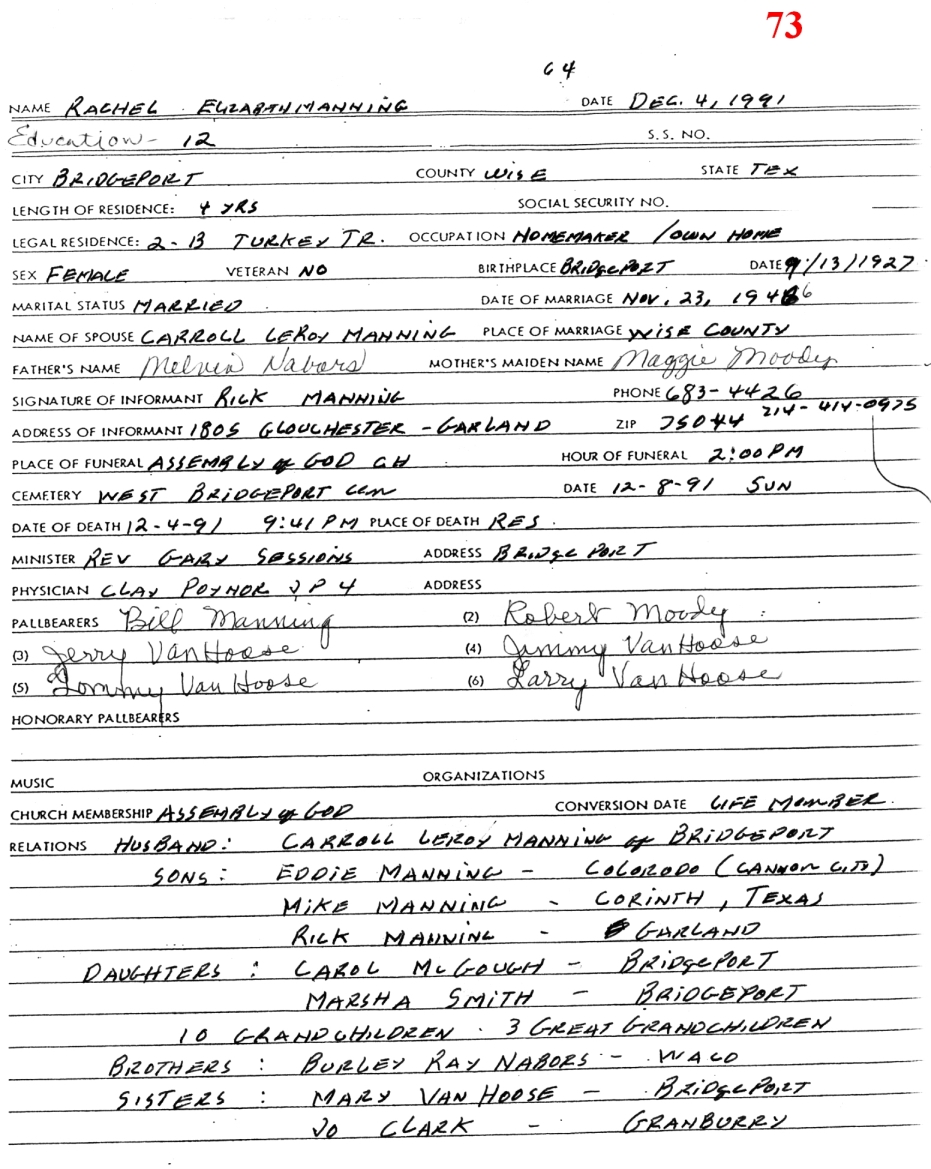 73
64
NAME RACHEL ELIZABTH MANNING DATE DEC. 4, 1991
Education - 12 S.S. NO.
CITY BRIDGEPORT COUNTY WISE STATE TEX
LENGTH OF RESIDENCE: 4 YRS SOCIAL SECURITY NO.
LEGAL RESIDENCE: 2-13 TURKEY TR. OCCUPATION HOMEMAKER / OWN HOME
SEX FEMALE VETERAN NO BIRTHPLACE BRIDGEPORT DATE 9/13/1927
MARITAL STATUS MARRIED DATE OF MARRIAGE NOV. 23, 1946
NAME OF SPOUSE CARROLL LEROY MANNING PLACE OF MARRIAGE WISE COUNTY
FATHER'S NAME Melvin Nabors MOTHER'S MAIDEN NAME Maggie Moody
SIGNATURE OF INFORMANT RICK MANNING PHONE 683-4426
214-414-0975
ADDRESS OF INFORMANT 1805 GLOUCHESTER - GARLAND ZIP 75044
PLACE OF FUNERAL ASSEMBLY of GOD CH HOUR OF FUNERAL 2:00 PM
CEMETERY WEST BRIDGEPORT CEM DATE 12-8-91 SUN
DATE OF DEATH 12-4-91 9:41 PM PLACE OF DEATH RES.
MINISTER REV GARY SESSIONS ADDRESS BRIDGEPORT
PHYSICIAN CLAY POYNOR JP 4 ADDRESS
PALLBEARERS Bill Manning (2) Robert Moody
(3) Jerry VanHoose (4) Jimmy VanHoose
(5) Tommy Van Hoose (6) Larry Van Hoose
HONORARY PALLBEARERS
MUSIC ORGANIZATIONS
CHURCH MEMBERSHIP ASSEMBLY of GOD CONVERSION DATE LIFE MEMBER.
RELATIONS HUSBAND: CARROLL LEROY MANNING of BRIDGEPORT
SONS: EDDIE MANNING - COLORADO (CANNON CITY)
MIKE MANNING - CORINTH, TEXAS
RICK MANNING - GARLAND
DAUGHTERS: CAROL McGOUGH - BRIDGEPORT
MARSHA SMITH - BRIDGEPORT
10 GRANDCHILDREN · 3 GREAT GRANDCHILDREN
BROTHERS: BURLEY RAY NABORS - WACO
SISTERS: MARY VAN HOOSE - BRIDGEPORT
JO CLARK - GRANBURRY